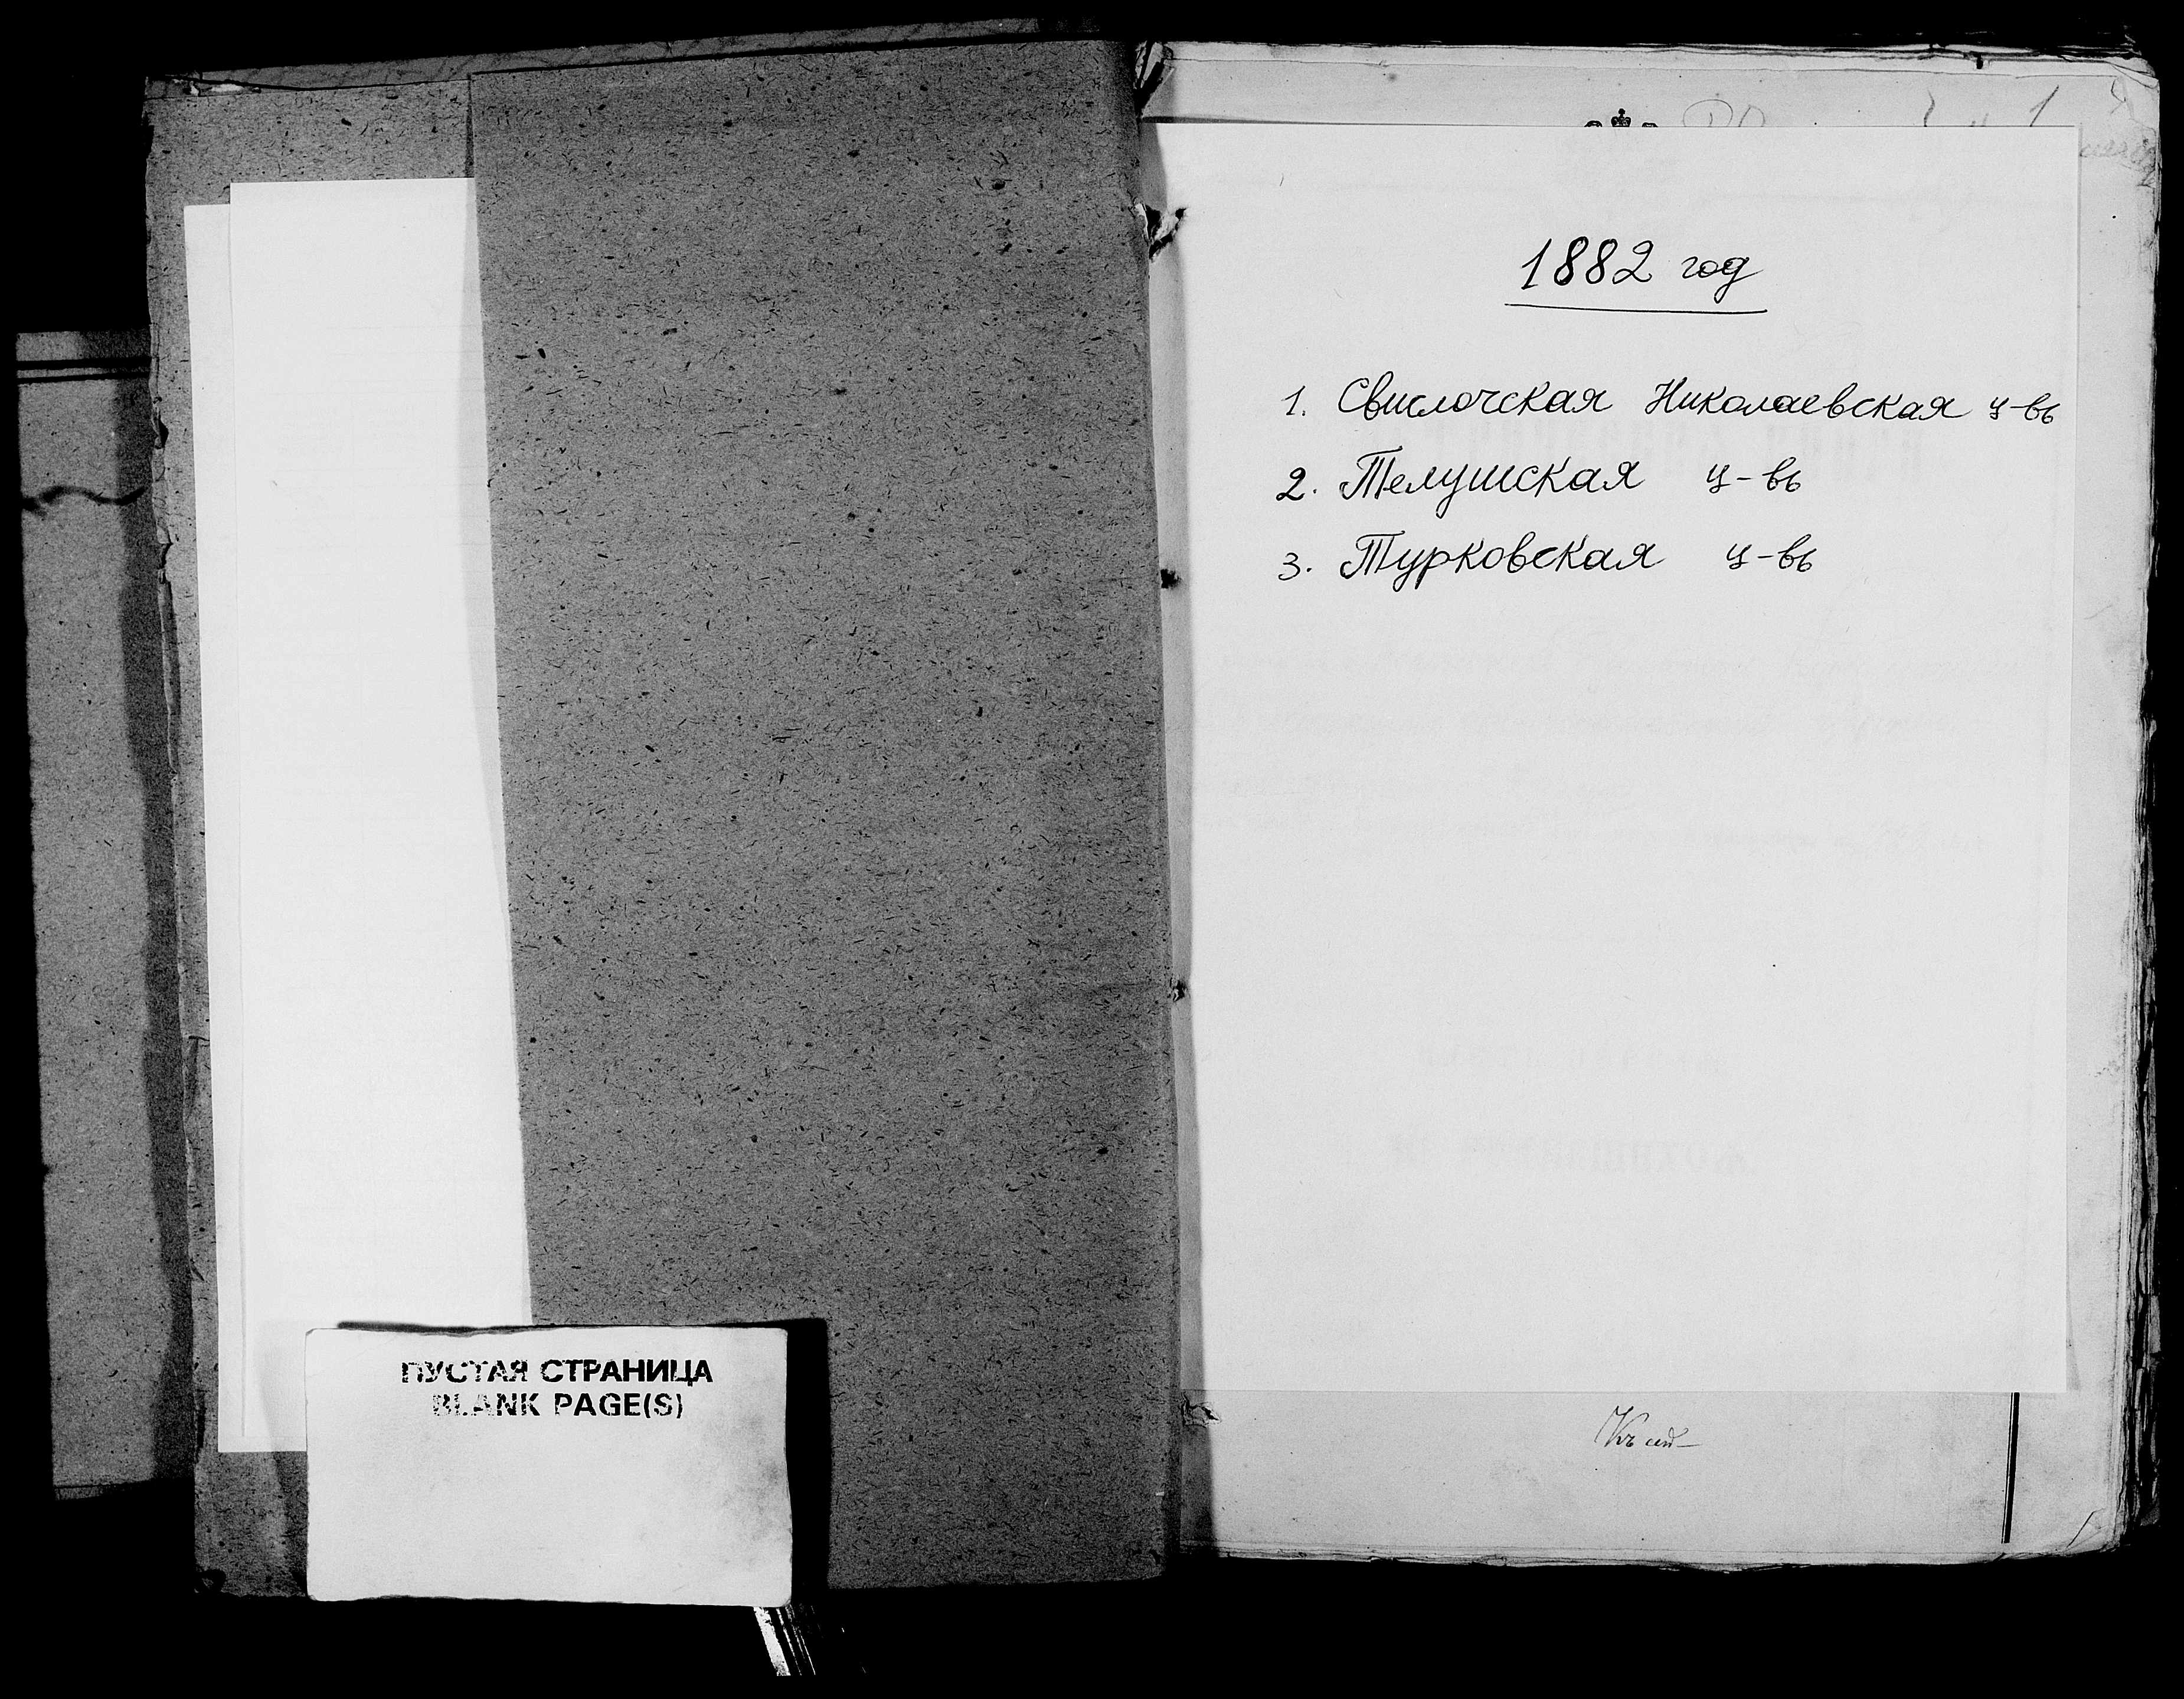 ПУСТАЯ СТРАНИЦА
BLANK PAGE(S)
1
1882 год
1. Свислочская Николаевская ц-вь
2. Телушская ц-вь
3. Турковская ц-вь